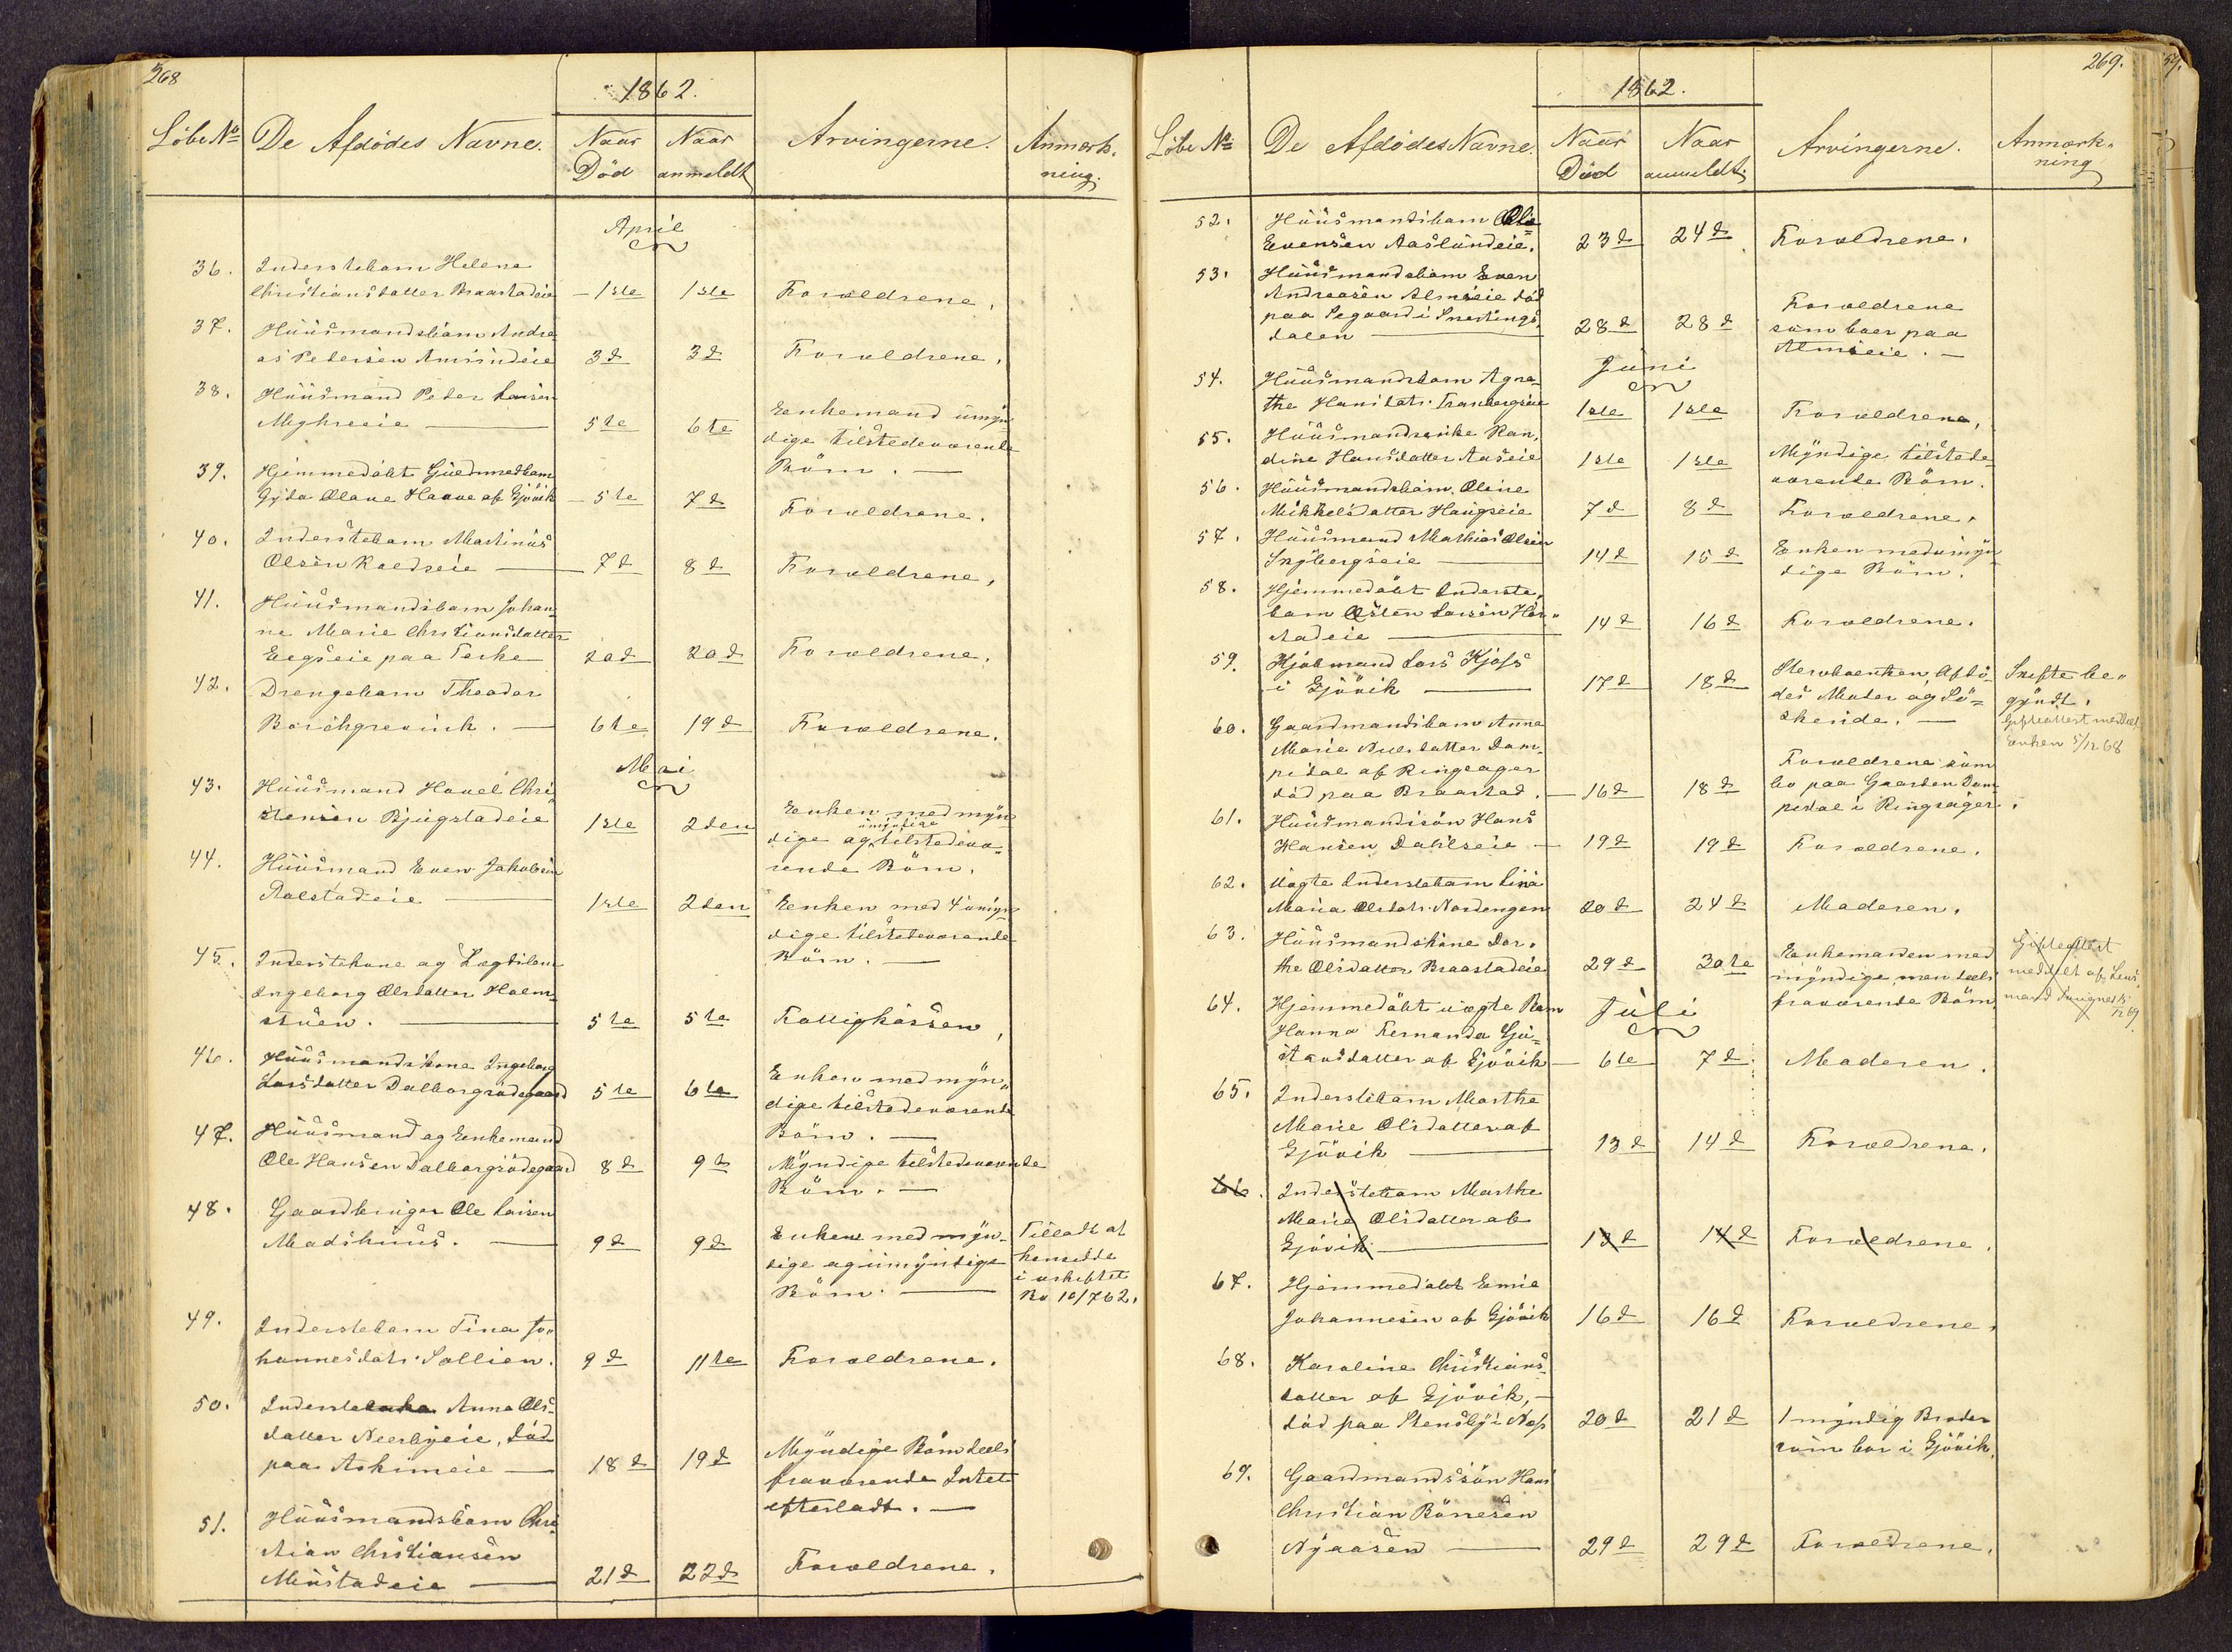 268
1862.
Löbe No De Afdödes Navne. Naar Död Naar anmeldt Arvingerne. Anmærk-
ning.
April
36. Inderstebarn Helene
Christiansdatter Braastadeie 1ste 1ste Forældrene.
37. Huusmandsbarn Andre
as Pedersen Amrudeie 3d 3d Forældrene.
38. Huusmand Peder Larsen
Meghreeie 5te 6te Enkemand umyn
dige tilstedeværende
Börn.
39. Hjemmedöbt
Gyda Olave Haave af Gjövik 5te 7d Forældrene.
40. Inderstebarn Martinus
Olsen Roldseie 7d 8d Forældrene,
41. Huusmandsbarn Johan
ne Marie Christiansdatter
Eegseie paa Terke 20d 20d Forældrene.
42. Drengebarn Theodor
Borchgrevink. 6te 19d Forældrene.
Mai
43. Huusmand Hovel Chri
stensen Bjugstadeie 1ste 2den Enken med myn
dige og umyndige tilstedevæ-
rende Börn.
44. Huusmand Even Jakobsen
Rolstadeie 1ste 2den Enken med 4 umyn
dige tilstedeværende
Börn.
45. Inderstekone og Lægdslem
Ingeborg Olsdatter Holm-
stuen. 5te 5te Fattigkassen,
46. Huusmandskone Ingeborg
Larsdatter Dalborgsödegaard 5te 6te Enken med myn-
dige tilstedeværende
Börn.
47. Huusmand og Enkemand
Ole Hansen Dalborgsödegaard 8d 9de Myndige tilstedeværende
Börn.
48. Gaardbruger Ole Larsen
Madshuus. 9d 9d Enken med myn-
dige og umyndige
Börn.
Tilladt at
hensidde
i uskiftet
Bo 10/7 62.
49. Inderstebarn Tina Jo-
hannesdatr. Sollien. 9d 11te Forældrene.
50. Inderste Anna Ols-
datter Neerbyeie, död
paa Askimeie 18d 19d Myndige Börn deels
fraværende Intet
efterladt.
51. Huusmandsbarn Chri
stian Christiansen
Mustadeie 21d 22d Forældrene.
269.
1862.
Löbe No De Afdödes Navne. Naar Död Naar anmeldt. Arvingerne. Anmærk-
ning
52. Huusmandsbarn Ole
Evensen Aaslundeie. 23d 24d Forældrene.
53. Huusmandsbarn Even
Andreasen Almseie död
paa Segaard i Snertings
dalen 28d 28d Forældrene
som boer paa
Almseie.
Juni
54. Huusmandsbarn Agna-
the Hansdatr. Tranbergseie 1ste 1ste Forældrene,
55. Huusmandsenke Ran-
dine Hansdatter Aaseie 1ste 1ste Myndige tilstede
værende Börn.
56. Huusmandsbarn Oline
Mikkelsdatter Haugseie 7d 8d Forældrene,
57. Huusmand Mathias Olsen
Snybergseie 14d 15d Enken med umyn
dige Börn.
58. Hjemmedöbt Inderste-
barn Østen Larsen
14d 16d Forældrene.
59. Kjöbmand Lars Kjøs
i Gjövik 17d 18d Stervboenken, Afdö-
des Moder og Sö-
skende.
Skifte be-
gyndt.
Gifteattest meddelt
Enken 5/12 68
60. Gaardmandsbarn Anna
Marie Nilsdatter Dom-
pidal af Ringsager
död paa Braastad. 16d 18d Forældrene som
bo paa Gaarden Dom
pidal i Ringsager.
61. Huusmandssön Hans
Hansen Dahlseie 19d 19d Forældrene.
62. Uægte Inderstebarn Lina
Maria Olsdatr. Nordengen 20d 24d Moderen.
63. Huusmandskone Dor-
the Olsdatter Braastadeie 29d 30te Enkemanden med
myndige, men deels
fraværende Börn.
Gifteattest
meddelt af Lens
mand
Juli
64. Hjemmedöbt uægte Barn
Hanna Fernanda Gu-
stavsdatter af Gjövik 6te 7d Moderen.
65. Inderstebarn Marthe
Marie Olsdatter af
Gjövik 13d 14d Forældrene.
66. Inderstebarn Marthe
Marie Olsdatter af
Gjövik 13d 14d Forældrene.
67. Hjemmedöbt Emil
Johannesen af Gjövik 16d 16d Forældrene.
68. Karoline Christians-
datter af Gjövik,
död paa Stensby i Næs 20d 21d 1 myndig Broder
som bor i Gjövik.
69. Gaardmandssön Hans
Christian Börresen
Nyaasen 29d 29d Forældrene.